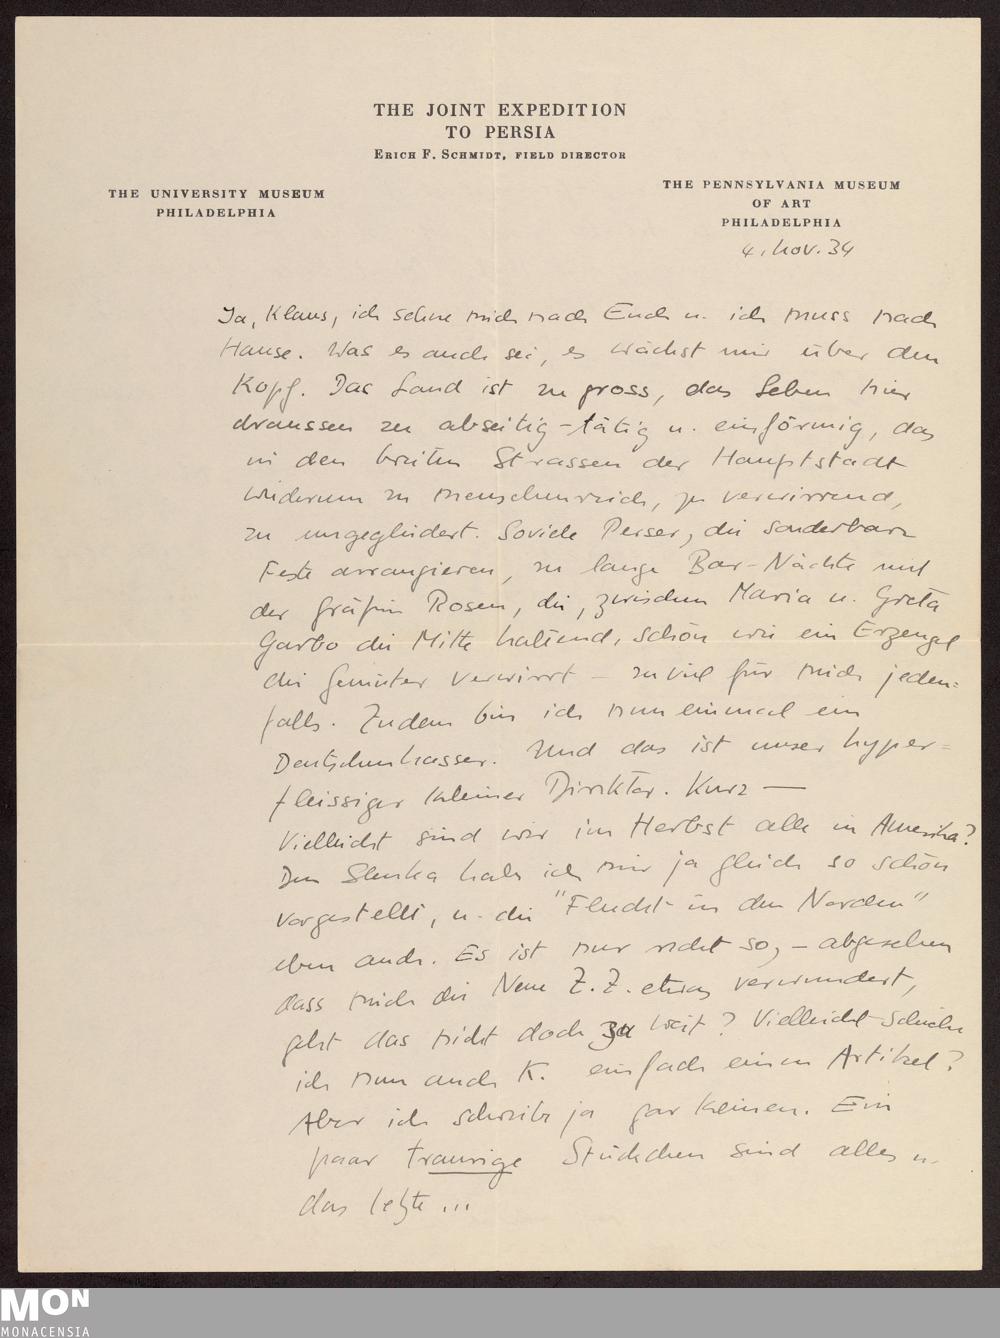 THE JOINT EXPEDITION
TO PERSIA
ERICH F. SCHMIDT, FIELD DIRECTOR
THE UNIVERSITY MUSEUM
PHILADELPHIA
THE PENNSYLVANIA MUSEUM
OF ART
PHILADELPHIA
4. Nov. 34
Ja, Klaus, ich sehne mich nach Euch u. ich muss nach
Hause. Was es auch sei, es wächst mir über den
Kopf. Das Land ist zu gross, das Leben hier
draussen zu abseitig-tätig u. einförmig, das
in den breiten Strassen der Hauptstadt
wiederum zu menschenreich, zu verwirrend,
zu ungegliedert. Soviele Perser, die sonderbare
Feste arrangieren, zu lange Bar-Nächte mit
der Gräfin Rosen, die, zwischen Maria u. Greta
Garbo die Mitte haltend, schön wie ein Erzengel
die Gemüter verwirrt – zuviel für mich jeden=
falls. Zudem bin ich nun einmal ein
Deutschenhasser. Und das ist unser hyper=
fleissiger kleiner Direktor. Kurz —
Vielleicht sind wir im Herbst alle in Amerika?
Den Slenka habe ich mir ja gleich so schön
vorgestellt, u. die "Flucht in den Norden"
eben auch. Es ist nur nicht so, – abgesehen
dass mich die Neue Z. Z. etwas verwundert,
geht das nicht doch zu weit? Vielleicht schicke
ich nun auch K. einfach einen Artikel?
Aber ich schreibe ja gar keinen. Ein
paar traurige Stückchen sind alles u.
das letzte ...
MON
MONACENSIA